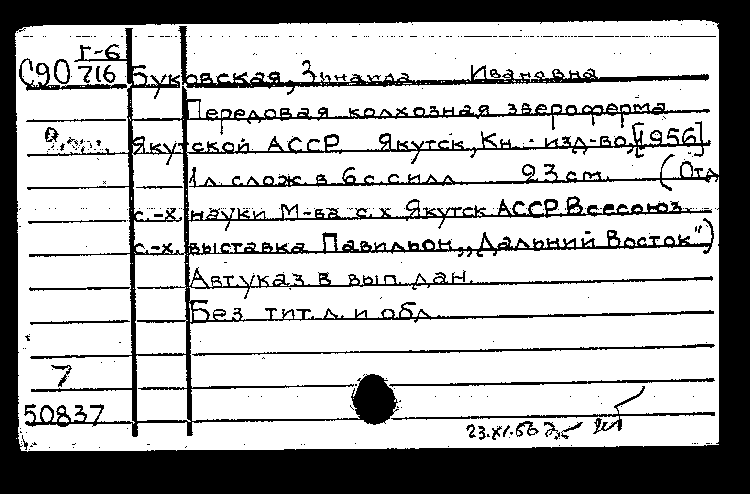 Г-6
С90 716 Буковская, Зинаида Ивановна
Передовая колхозная звероферма
Якутской АССР. Якутск, Кн. изд-во, [1956].
1 л. слож. в 6 с. с илл. 23 см. (Отд
с.-х. науки М-ва с.х Якутск АССР. Всесоюз.
с.-х. выставка. Павильон „Дальний Восток")
Авт. указ. в вып. дан.
Без тит. л. и обл.
7
50837
23.XI.56